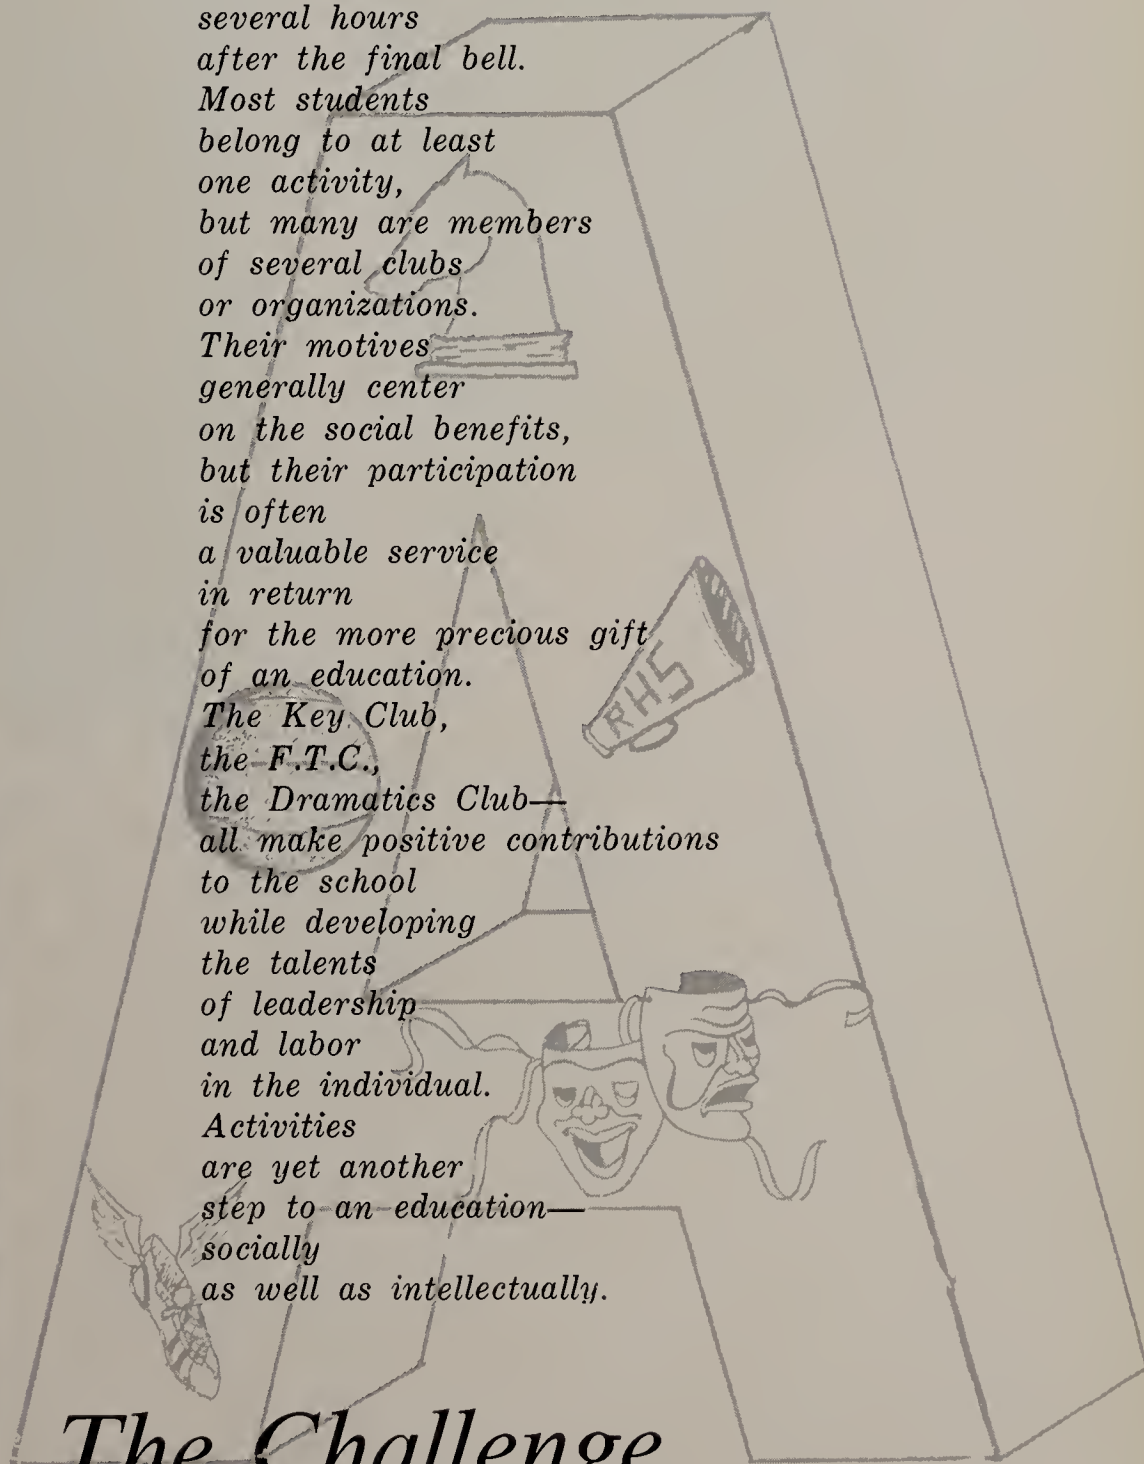 several hours
after the final bell.
Most students
belong to at least
one activity,
but many are members
of several clubs
or organizations.
Their motives
generally center
on the social benefits,
but their participation
is often
a valuable service
in return
for the more precious gift
of an education.
The Key Club,
the F.T.C.,
the Dramatics Club—
all make positive contributions
to the school
while developing
the talents
of leadership
and labor
in the individual.
Activities
are yet another
step to an education—
socially
as well as intellectually.
RHS
The Challenge